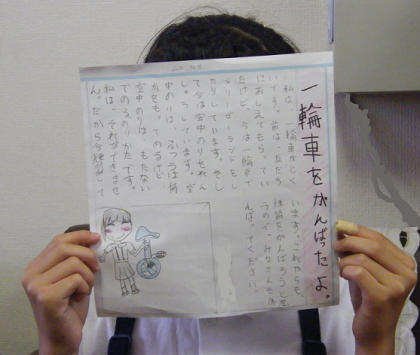 一輪車をがんばったよ。
私は、一輪車がとく
いです。前は、友だち
におしえてもらってい
たけど、今は一輪車で
メリーゴーランドをし
たりしています。そし
て今は空中のりをれん
しゅうしています。空
中のりは、ふつうは何
かをもってのるけど
空中のりは、もたない
でのるのりかたです。
私は、それができませ
ん。だから今練習して
います。これからも、
練習をがんばろうと思
うので、みなさんも
がんばってください。